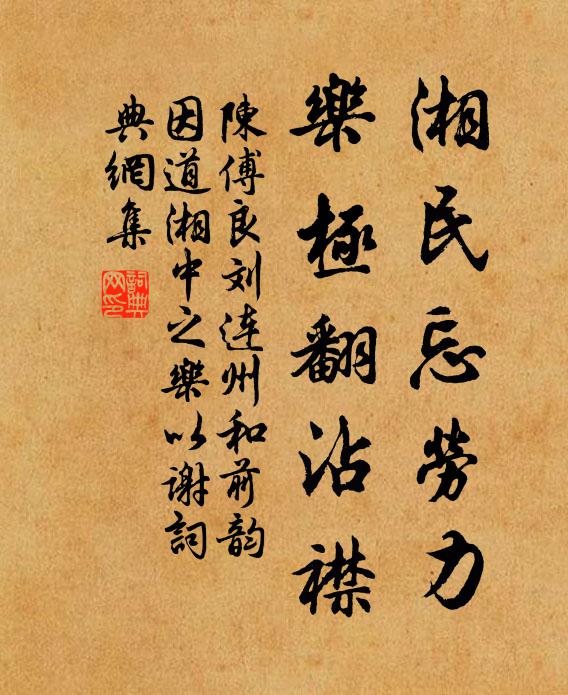 湘民忘勞力
樂極翻沾襟
陳傅良刘连州和前韵
因道湘中之樂以谢詞
典網集
詞典
网印